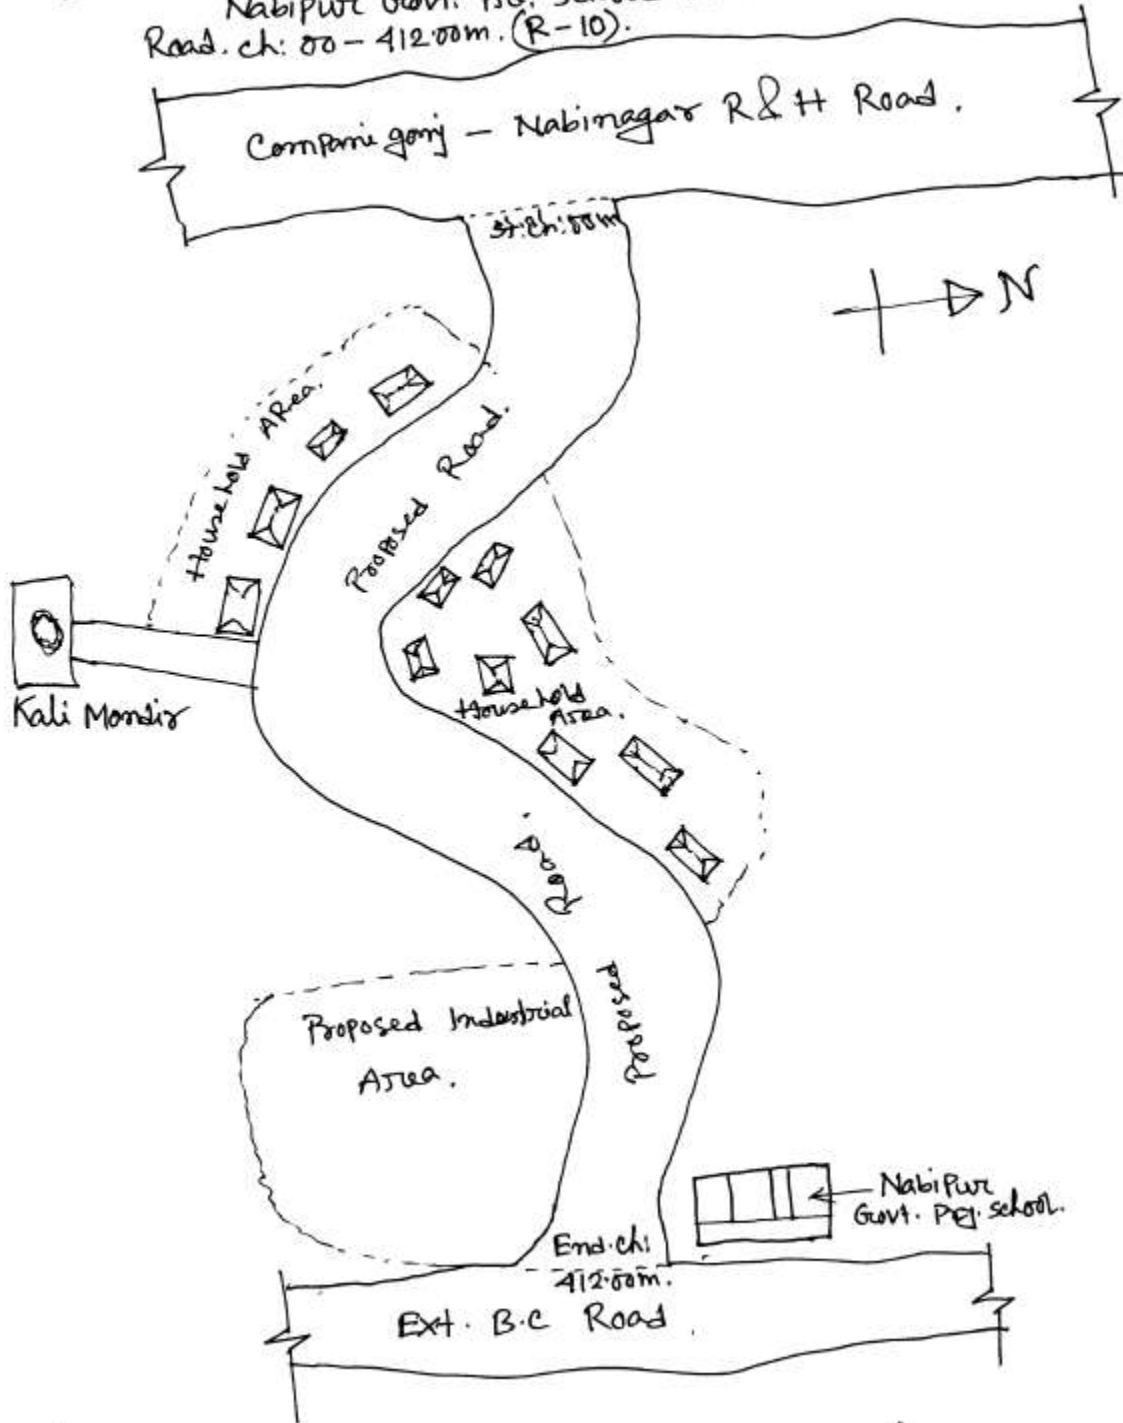 Nabipur Govt.
Road. ch: 00 - 412.00m. (R-10).
Companigonj - Nabinagar R&H Road.
st:ch:00m
N
Household ARea.
Proposed Road.
Kali Mondir
Household
Area.
Proposed Road.
Proposed Industrial
Area.
Nabipur
Govt. Prg. school.
End.ch:
412.00m.
Ext. B.C Road